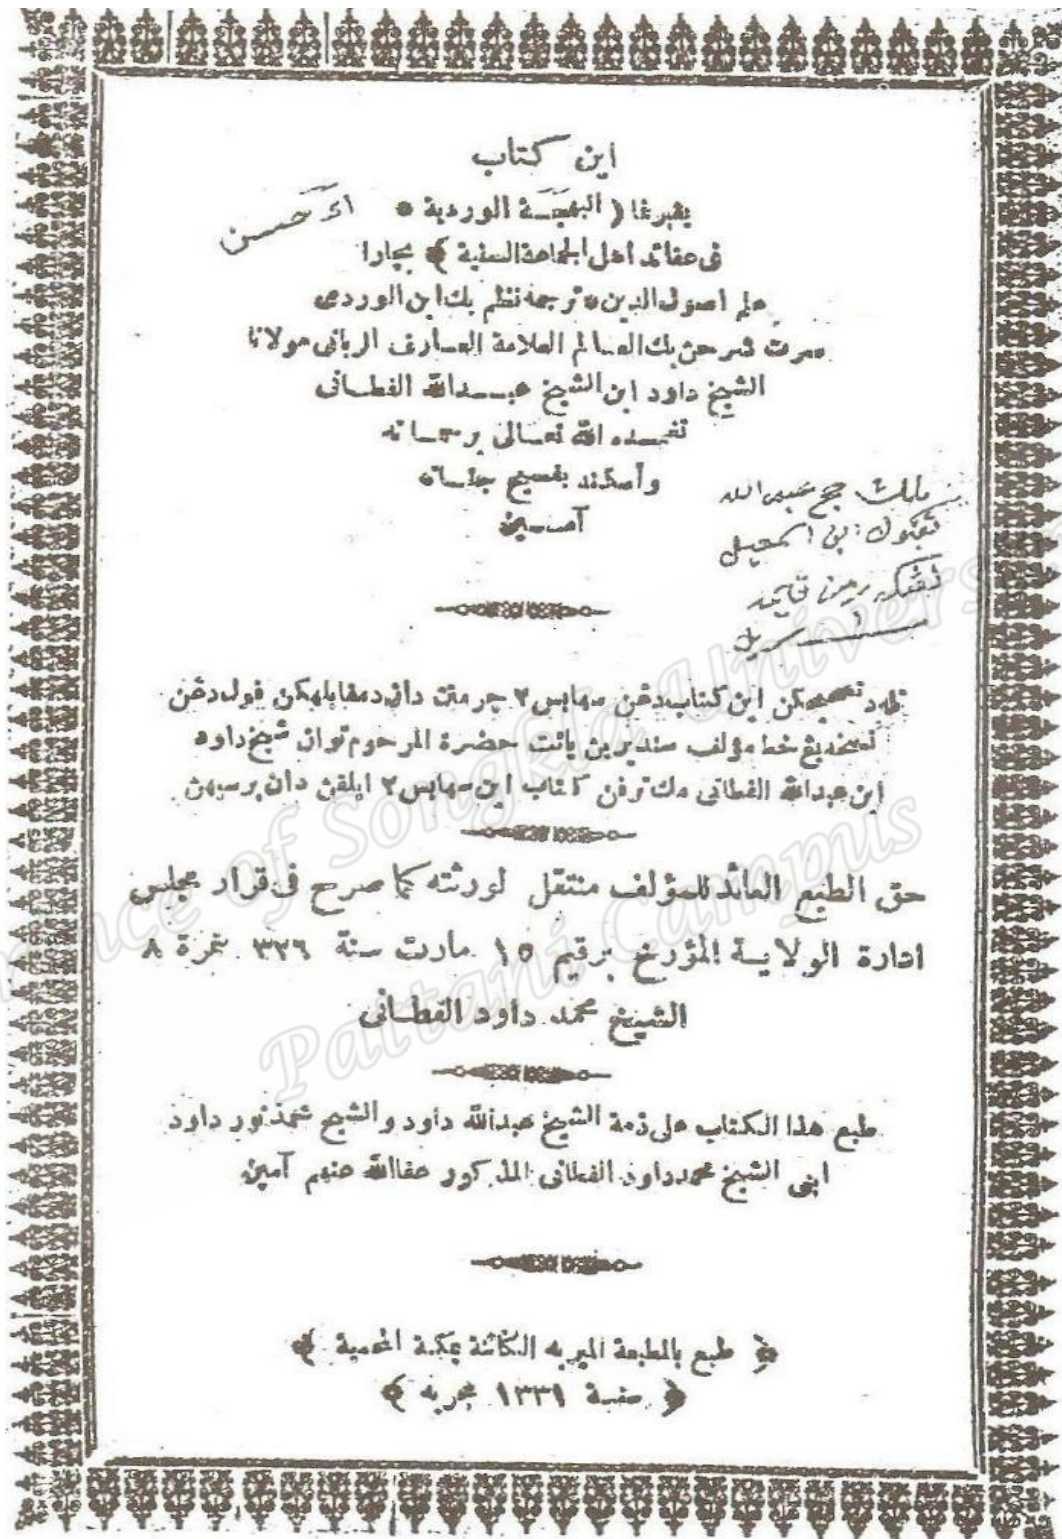 اين كتاب
يڠبرنما ﴿ البهجة الوردية *
فى عقائد أهل الجماعة السنية ﴾ بچارا
علم اصول الدين * ترجمه نظم بݢ ابن الوردى
سرت شرحن بݢ العالم العلامة العارف الربانى مولانا
الشيخ داود ابن الشيخ عبدالله الفطانى
تغمده الله تعالى برحماته
وأسكنه بفسيح جناته
آمين
حسن
حج عبد الله
بن اسمعيل
تله دتصحيحكن اين كتاب دڠن سهابس٢ چرمتن دان دمقابلهكن فول دڠن
نسخه يڠ خط مؤلف سنديرين يائت حضرة المرحوم توان شيخ داود
ابن عبدالله الفطانى مك ترفن كتاب اين سهابس٢ ايلقن دان برسيهن
حق الطبع العائد للمؤلف منتقل لورثته كما صرح فى قرار مجلس
ادارة الولاية المؤرخ برقيم ١٥ مارت سنة ٣٢٦ نمرة ٨
الشيخ محمد داود الفطانى
طبع هذا الكتاب على ذمة الشيخ عبدالله داود والشيخ محمد نور داود
ابنى الشيخ محمد داود الفطانى المذكور عفا الله عنهم آمين
﴿ طبع بالمطبعة الميريه الكائنة بمكة المحمية ﴾
﴿ سنة ١٣٣١ هجريه ﴾
Prince of Songkla Univers
Pattani Campus